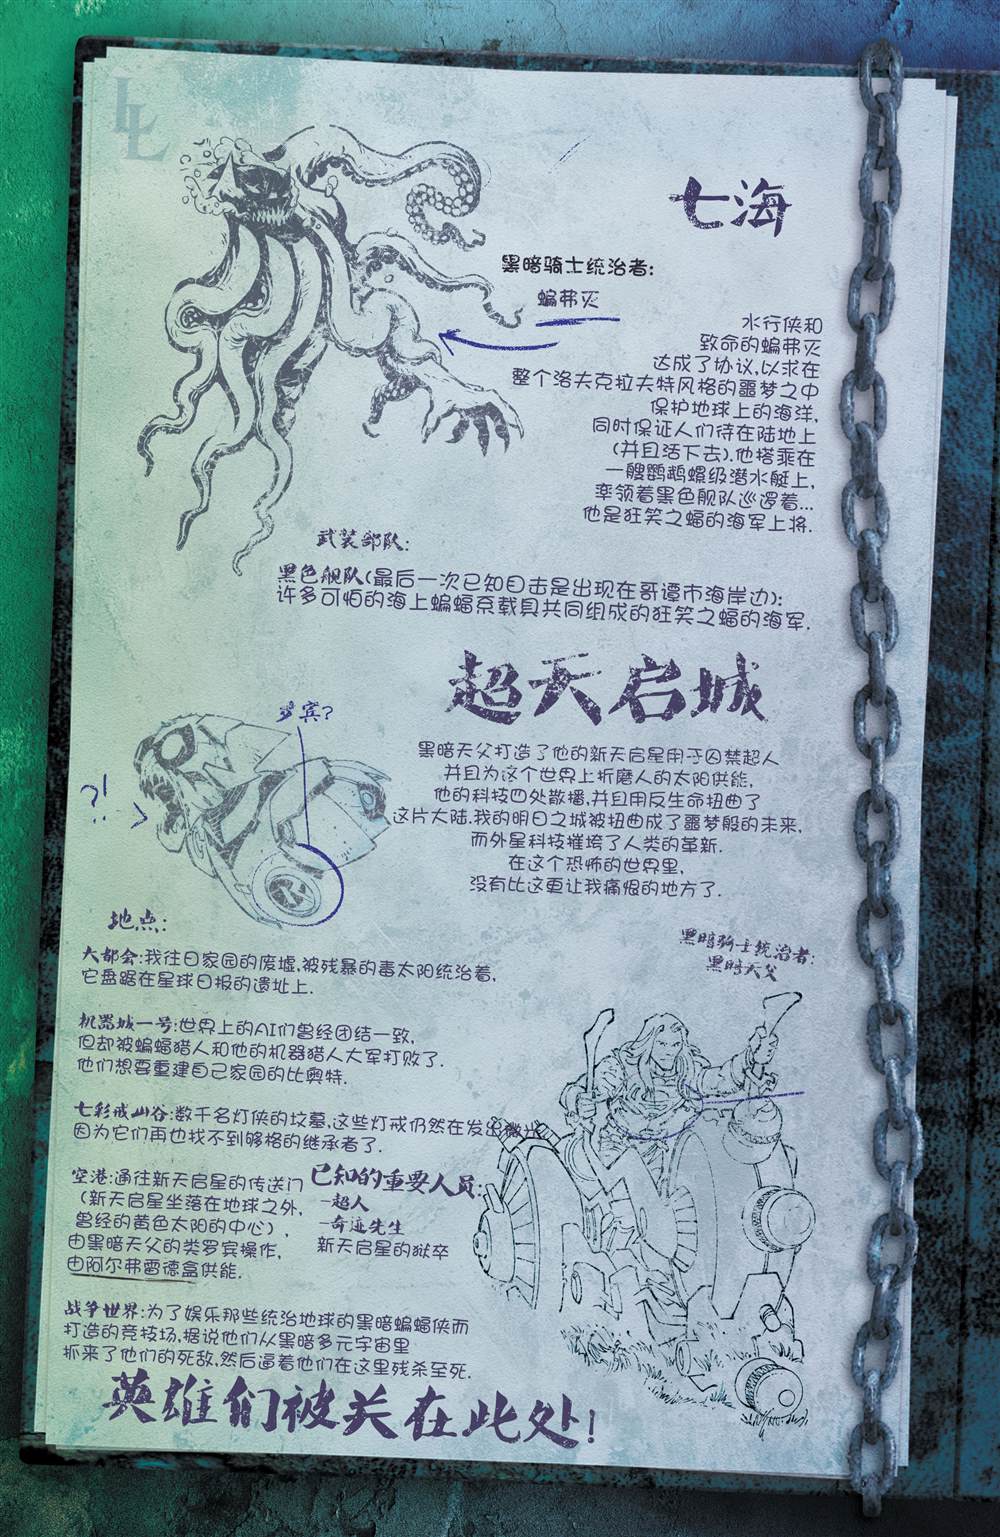 LL
七海
黑暗骑士统治者:
蝙弗灭
水行侠和
致命的蝙弗灭
达成了协议,以求在
整个洛夫克拉夫特风格的噩梦之中
保护地球上的海洋,
同时保证人们待在陆地上
(并且活下去).他搭乘在
一艘鹦鹉螺级潜水艇上,
率领着黑色舰队巡逻着...
他是狂笑之蝠的海军上将.
武装部队:
黑色舰队(最后一次已知目击是出现在哥谭市海岸边):
许多可怕的海上蝙蝠系载具共同组成的狂笑之蝠的海军.
超天启城
罗宾?
?!
黑暗天父打造了他的新天启星用于囚禁超人
并且为这个世界上折磨人的太阳供能,
他的科技四处散播,并且用反生命扭曲了
这片大陆.我的明日之城被扭曲成了噩梦般的未来,
而外星科技摧垮了人类的革新.
在这个恐怖的世界里,
没有比这更让我痛恨的地方了.
地点:
黑暗骑士统治者:
黑暗天父
大都会:我往日家园的废墟,被残暴的毒太阳统治着,
它盘踞在星球日报的遗址上.
机器城一号:世界上的AI们曾经团结一致,
但却被蝙蝠猎人和他的机器猎人大军打败了.
他们想要重建自己家园的比奥特.
七彩戒山谷:数千名灯侠的坟墓,这些灯戒仍然在发出微光
因为它们再也找不到够格的继承者了.
空港:通往新天启星的传送门
(新天启星坐落在地球之外,
曾经的黄色太阳的中心),
由黑暗天父的类罗宾操作,
由阿尔弗雷德盒供能.
已知的重要人员:
-超人
-奇迹先生
新天启星的狱卒
战争世界:为了娱乐那些统治地球的黑暗蝙蝠侠而
打造的竞技场.据说他们从黑暗多元宇宙里
抓来了他们的死敌,然后逼着他们在这里残杀至死.
英雄们被关在此处!